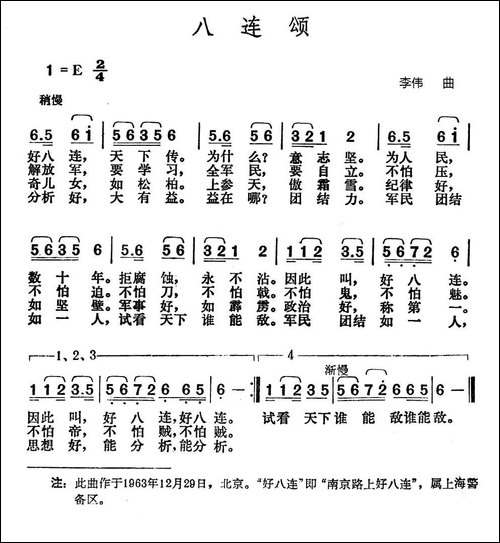 八连颂
1=E 2/4
李伟 曲
稍慢
6.5 6i 5635 6 5.6 56 321 2 6.5 6i
好八连，天下传。为什么？意志坚。为人民，
解放军，要学习，全军民，要自立。不怕压，
奇儿女，如松柏。上参天，傲霜雪。纪律好，
分析好，大有益。益在哪？团结力。军民团结
5635 6 5.6 56 321 2 112 3.5 5672 6
数十年。拒腐蚀，永不沾。因此叫，好八连。
不怕迫。不怕刀，不怕戟。不怕鬼，不怕魅。
如坚壁。军事好，如霹雳。政治好，称第一。
如一人，试看天下谁能敌。军民团结如一人，
1、2、3 4
渐慢
112 3.5 5672 6 65 6- 112 3.5 5672 65 6-
因此叫，好八连，好八连。 试看天下谁能敌谁能敌。
不怕帝，不怕贼，不怕贼。
思想好，能分析，能分析。
注：此曲作于1963年12月29日，北京。“好八连”即“南京路上好八连”，属上海警
备区。